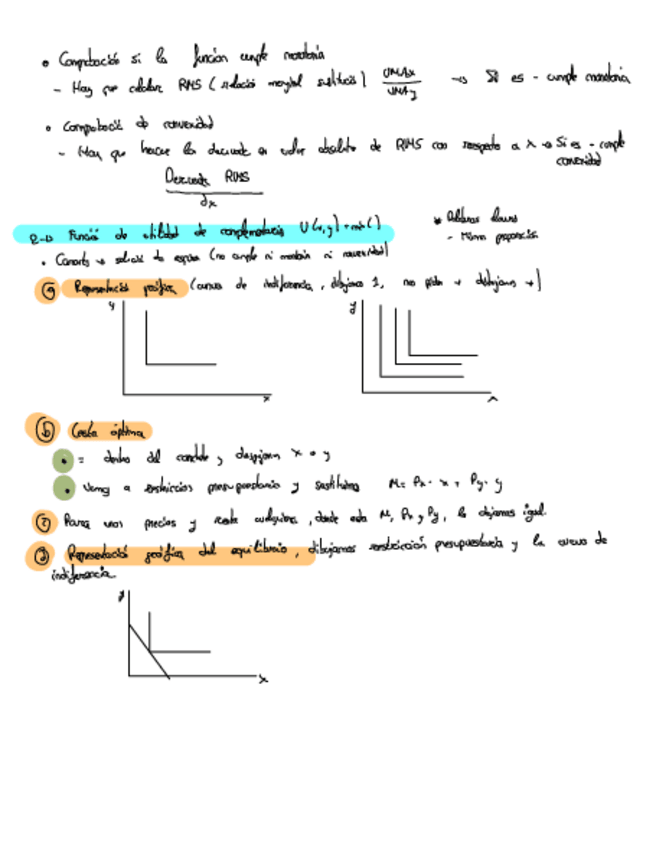 • Comprobación si la función cumple monotonía
- Hay que calcular RMS (relació marginal substitució) UMAx / UMAy → Si es - cumple monotonía
• Comprobació de convexidad
- Hay que hacer la derivada en valor absoluto de RMS con respecto a x → Si es - cumple
convexidad
Derivada RMS
dx
Funció de utilidad de complementarios U(x,y) = min()
* Palabras claves
- Misma proporción
• Canasts → solució de esquina (no cumple ni monotonía ni convexidad)
a) Representació gráfica (curva de indiferencia, dibujamos 1, nos piden + dibujamos +)
y
y
x
x
b) Cesta óptima
• = dentro del corchete y despejamos x o y
• Vamos a restricción presupuestaria y sustituimos M = Px · x + Py · y
c) Para unos precios y renta cualquiera, donde esta M, Px y Py, lo dejamos igual.
d) Representació gráfica del equilibrio, dibujamos restricción presupuestaria y la curva de
indiferencia
y
x